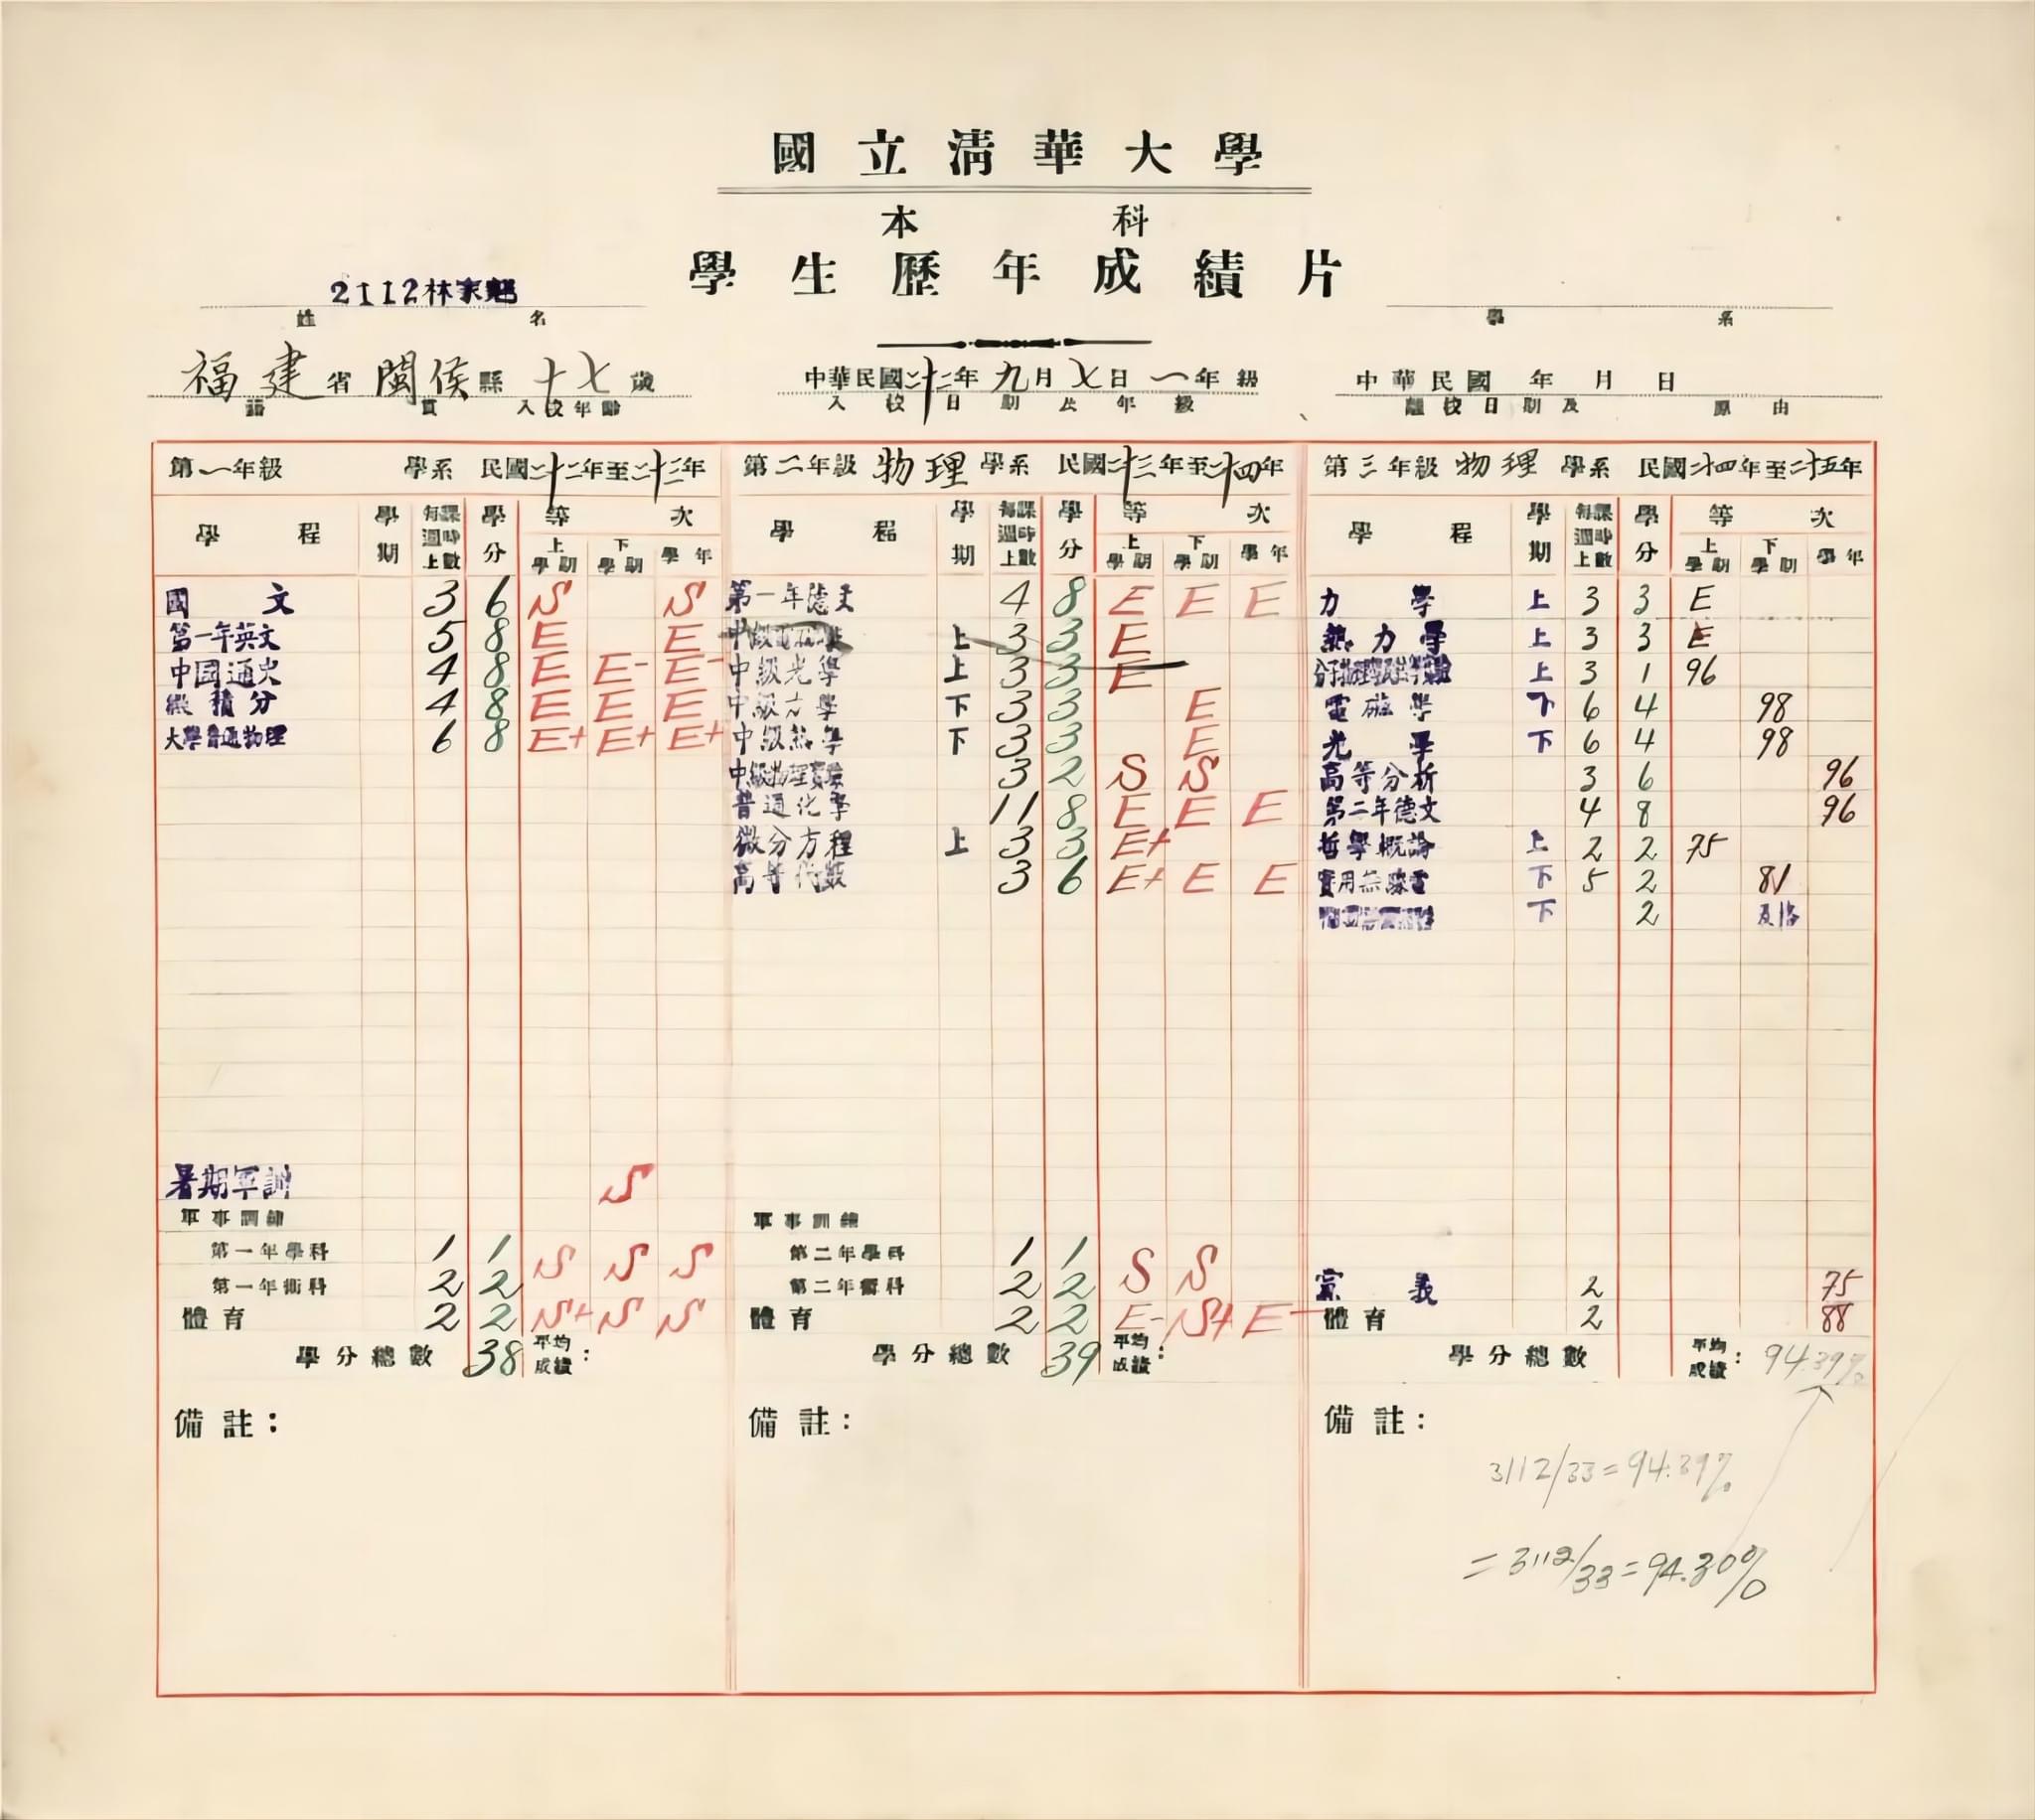 國立清華大學
本科
學生歷年成績片
2112林家翹
姓名
學系
福建省閩侯縣十七歲
籍貫 入校年齡
中華民國二十二年九月七日一年級
入校日期及年級
中華民國 年 月 日
離校日期及原由
第一年級 學系 民國二十二年至二十三年
學程 學期 每週上課時數 學分 等次
上學期 下學期 學年
國文 3 6 S S
第一年英文 5 8 E E
中國通史 4 8 E E- E-
微積分 4 8 E E E
大學普通物理 6 8 E+ E+ E+
暑期軍訓 S
軍事訓練
第一年學科 1 1 S S S
第一年術科 2 2
體育 2 2 S+ S S
學分總數 38 平均成績:
備註:
第二年級 物理 學系 民國二十三年至二十四年
學程 學期 每週上課時數 學分 等次
上學期 下學期 學年
第一年德文 4 8 E E E
中級 上 3 3 E
中級光學 上 3 3 E
中級力學 下 3 3 E
中級熱學 下 3 3 E
中級物理實驗 3 2 S S
普通化學 11 8 E E E
微分方程 上 3 3 E+
高等代數 3 6 E+ E E
軍事訓練
第二年學科 1 1 S S
第二年術科 2 2
體育 2 2 E- S+ E-
學分總數 39 平均成績:
備註:
第三年級 物理 學系 民國二十四年至二十五年
學程 學期 每週上課時數 學分 等次
上學期 下學期 學年
力學 上 3 3 E
熱力學 上 3 3 E
上 3 1 96
電磁學 下 6 4 98
光學 下 6 4 98
高等分析 3 6 96
第二年德文 4 8 96
哲學概論 上 2 2 75
實用無線電 下 5 2 81
下 2 及格
黨義 2 75
體育 2 88
學分總數 平均成績: 94.39%
備註:
3112/33=94.39%
=3112/33=94.30%